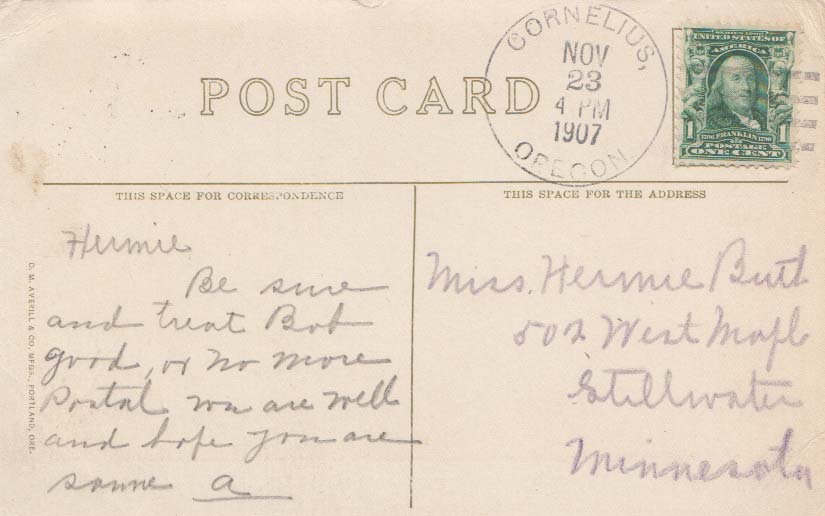 CORNELIUS,
NOV
23
4 PM
1907
OREGON
SERIES 1902
UNITED STATES OF
AMERICA
1 1
FRANKLIN
POSTAGE
ONE CENT
POST CARD
THIS SPACE FOR CORRESPONDENCE
THIS SPACE FOR THE ADDRESS
D. M. AVERILL & CO. MFGS., PORTLAND, ORE.
Hermie
Be sure
and treat Bob
good, or no more
Postal we are well
and hope you are
same a
Miss. Hermie Butt
502 West Mapl
Stillwater
Minnesota